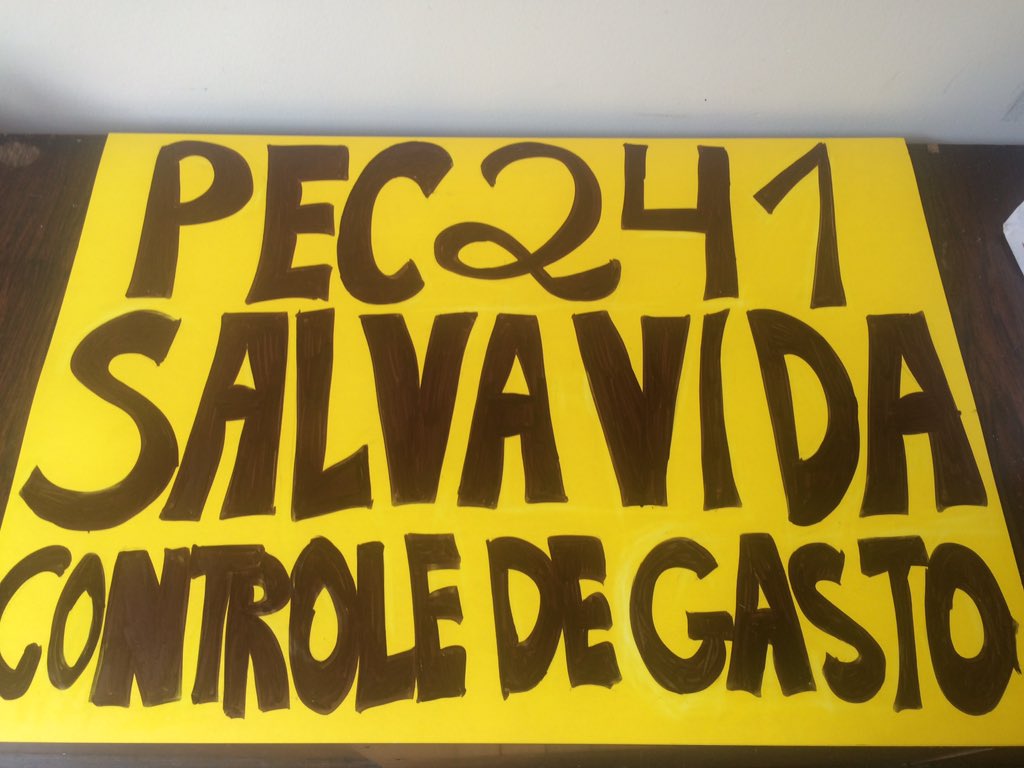 PEC 241
SALVA VIDA
CONTROLE DE GASTO